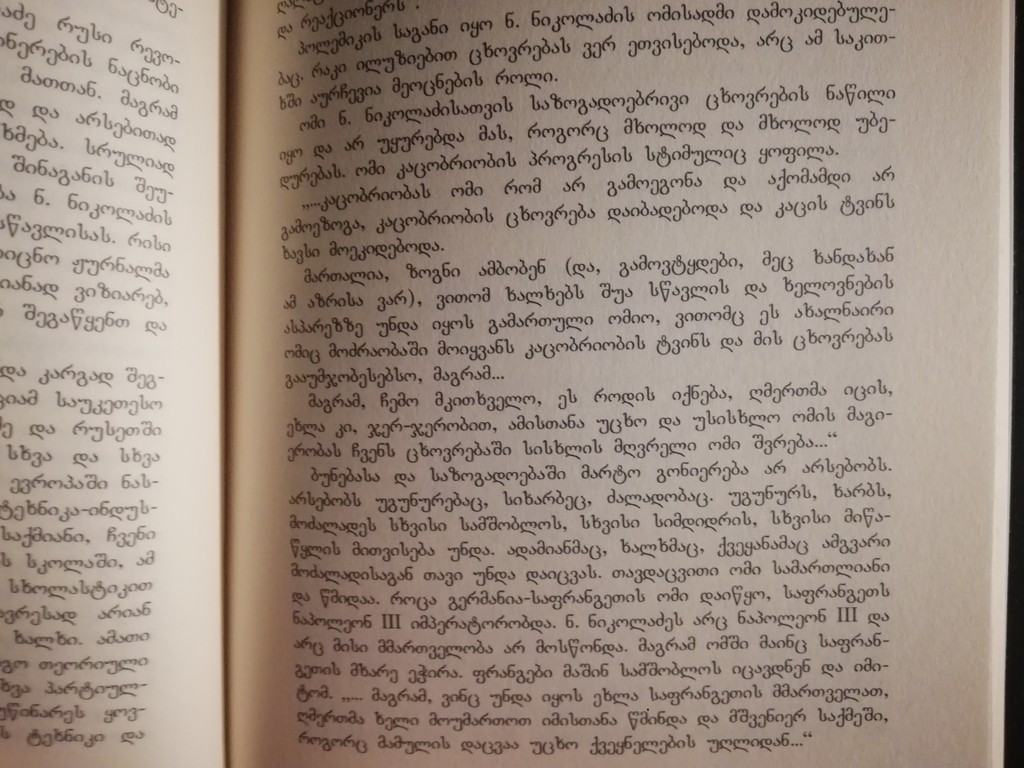 სტე-
აძე რუსი რევო-
ონერების ნაცნობი
მათთან. მაგრამ
დ და არსებითად
ხმება. სრულიად
შინაგანის შეუ-
ბა ნ. ნიკოლაძის
სწავლისას. რისი
იცნო ჟურნალმა
იანად ვიზიარებ,
შეგაწყენთ და
და კარგად შეგ-
იამ საუკეთესო
ე და რუსეთში
სხვა და სხვა
ევროპაში ნას-
ტეხნიკა-ინდუს-
საქმიანი, ჩვენი
ს სკოლაში, ამ
სხოლასტიკით
ავრესად არიან
ხალხი. ამათი
გო თეორიული
ხვა პარტიულ-
უწინარეს ყოვ-
ს ტეხნიკი და
და რეაქციონერს“.
პოლემიკის საგანი იყო ნ. ნიკოლაძის ომისადმი დამოკიდებულე-
ბაც. რაკი ილუზიებით ცხოვრებას ვერ ეთვისებოდა, არც ამ საკით-
ხში აურჩევია მეოცნების როლი.
ომი ნ. ნიკოლაძისათვის საზოგადოებრივი ცხოვრების ნაწილი
იყო და არ უყურებდა მას, როგორც მხოლოდ და მხოლოდ უბე-
დურებას. ომი კაცობრიობის პროგრესის სტიმულიც ყოფილა.
„...კაცობრიობას ომი რომ არ გამოეგონა და აქომამდი არ
გამოეზოგა, კაცობრიობის ცხოვრება დაიბადებოდა და კაცის ტვინს
ხავსი მოეკიდებოდა.
მართალია, ზოგნი ამბობენ (და, გამოვტყდები, მეც ხანდახან
ამ აზრისა ვარ), ვითომ ხალხებს შუა სწავლის და ხელოვნების
ასპარეზზე უნდა იყოს გამართული ომიო, ვითომც ეს ახალნაირი
ომიც მოძრაობაში მოიყვანს კაცობრიობის ტვინს და მის ცხოვრებას
გააუმჯობესებსო, მაგრამ...
მაგრამ, ჩემო მკითხველო, ეს როდის იქნება, ღმერთმა იცის,
ეხლა კი, ჯერ-ჯერობით, ამისთანა უცხო და უსისხლო ომის მაგი-
ერობას ჩვენს ცხოვრებაში სისხლის მღვრელი ომი შვრება...“
ბუნებასა და საზოგადოებაში მარტო გონიერება არ არსებობს.
არსებობს უგუნურებაც, სიხარბეც, ძალადობაც. უგუნურს, ხარბს,
მოძალადეს სხვისი სამშობლოს, სხვისი სიმდიდრის, სხვისი მიწა-
წყლის მითვისება უნდა. ადამიანმაც, ხალხმაც, ქვეყანამაც ამგვარი
მოძალადისაგან თავი უნდა დაიცვას. თავდაცვითი ომი სამართლიანი
და წმიდაა. როცა გერმანია-საფრანგეთის ომი დაიწყო, საფრანგეთს
ნაპოლეონ III იმპერატორობდა. ნ. ნიკოლაძეს არც ნაპოლეონ III და
არც მისი მმართველობა არ მოსწონდა. მაგრამ ომში მაინც საფრან-
გეთის მხარე ეჭირა. ფრანგები მაშინ სამშობლოს იცავდნენ და იმი-
ტომ. „... მაგრამ, ვინც უნდა იყოს ეხლა საფრანგეთის მმართველათ,
ღმერთმა ხელი მოუმართოთ იმისთანა წმინდა და მშვენიერ საქმეში,
როგორც მამულის დაცვაა უცხო ქვეყნელების უღლიდან...“